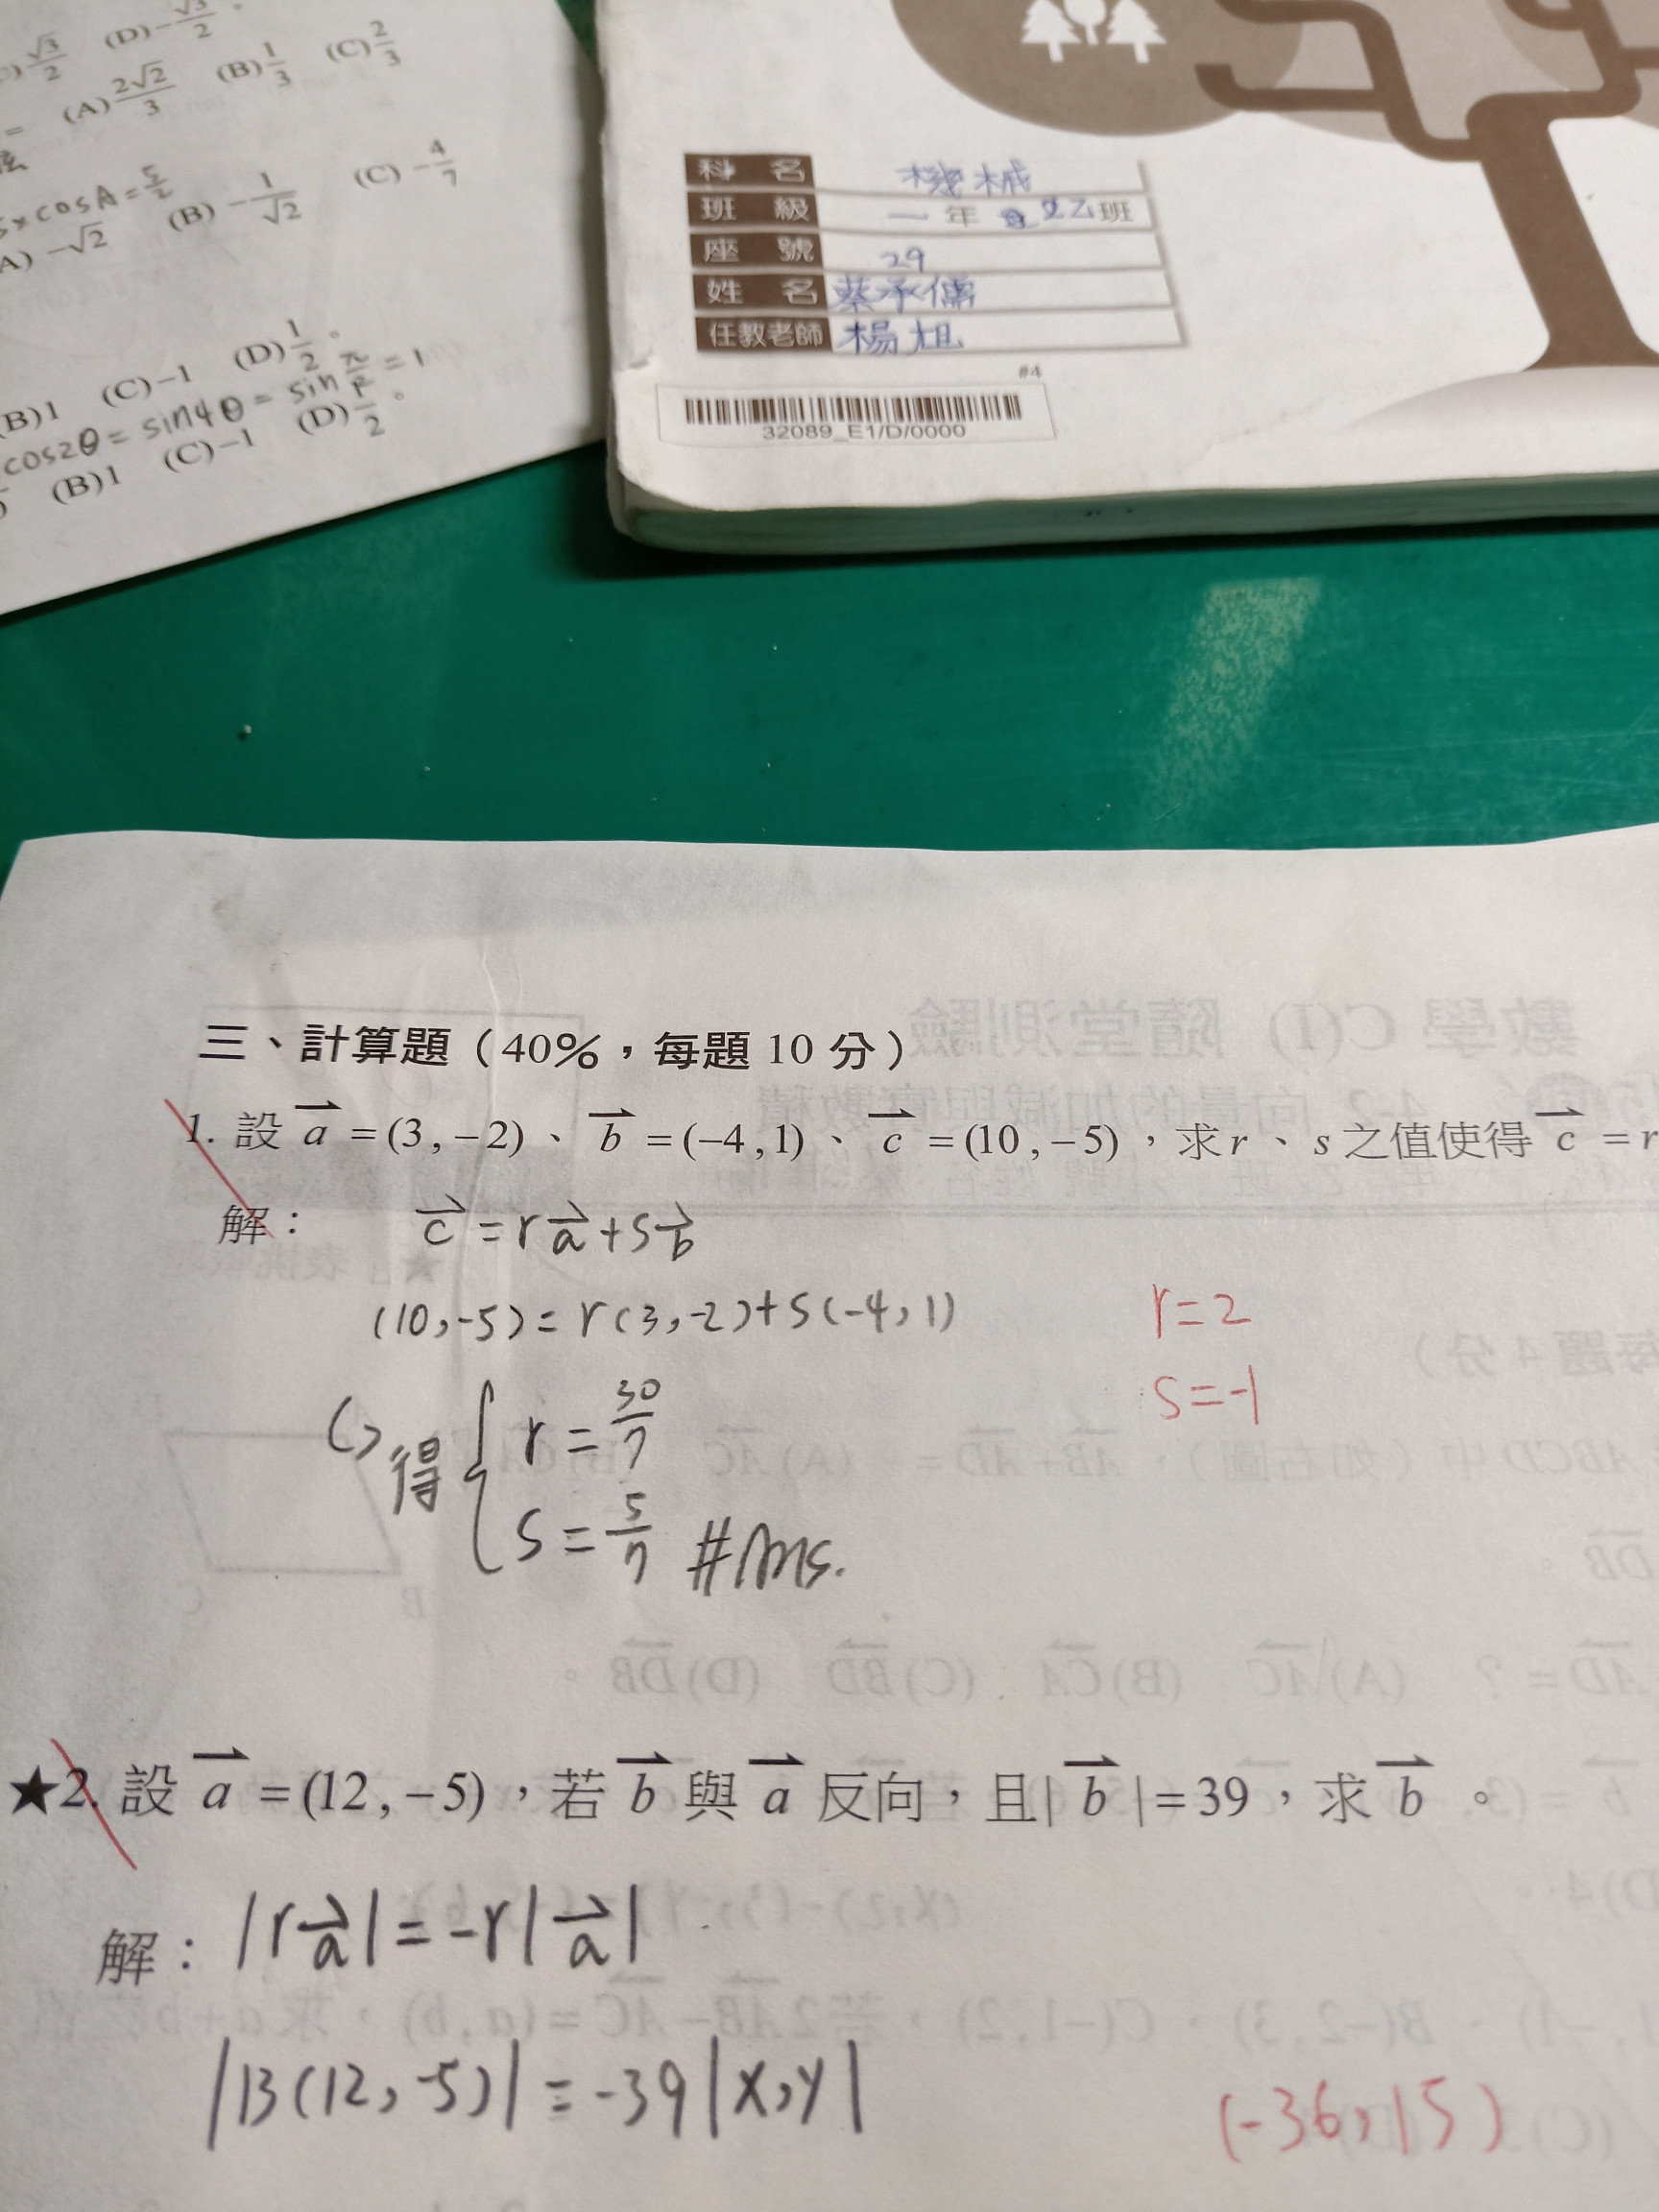 √3/2 (D)-√3/2。
= (A)2√2/3 (B)1/3 (C)2/3
×cosA=5/2
A)-√2 (B)-1/√2 (C)-4/7
(B)1 (C)-1 (D)1/2。
cos2θ=sin4θ=sinπ/2=1
(B)1 (C)-1 (D)1/2。
科名 機械
班級 一年 乙班
座號 29
姓名 蔡承儒
任教老師 楊旭
#4
32089_E1/D/0000
三、計算題（40%，每題 10 分）
1. 設 a⃗ =(3,-2)、b⃗ =(-4,1)、c⃗ =(10,-5)，求 r、s 之值使得 c⃗ = r
解： c⃗=ra⃗+sb⃗
(10,-5)=r(3,-2)+s(-4,1)
r=2
s=-1
得 { r=30/7
s=5/7 #Ans.
★2. 設 a⃗ =(12,-5)，若 b⃗ 與 a⃗ 反向，且| b⃗ |=39，求 b⃗ 。
解： |ra⃗|=-r|a⃗|
|13(12,-5)|=-39|x,y|
(-36,15)